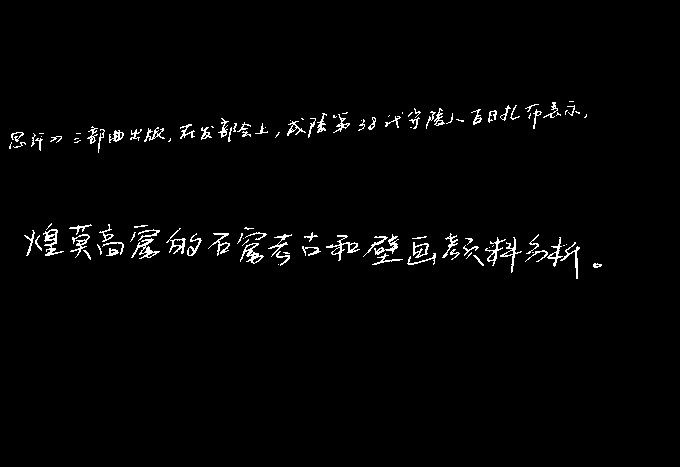 思汗》三部曲出版，在发部会上，成陵第38代守陵人古日扎布表示，
煌莫高窟的石窟考古和壁画颜料分析。